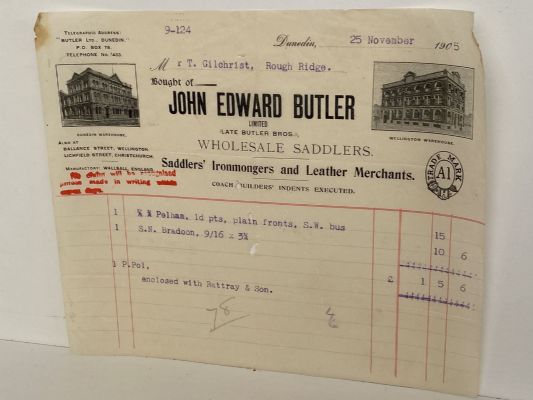 Telegraphic Address:
"BUTLER LTD., DUNEDIN."
P.O. BOX 76.
TELEPHONE No. 1403.
9-124
Dunedin, 25 November 1905
Mr T. Gilchrist, Rough Ridge.
Bought of
JOHN EDWARD BUTLER
LIMITED
(LATE BUTLER BROS.)
WHOLESALE SADDLERS.
Saddlers' Ironmongers and Leather Merchants.
COACH BUILDERS' INDENTS EXECUTED.
DUNEDIN WAREHOUSE.
WELLINGTON WAREHOUSE.
ALSO AT
BALLANCE STREET, WELLINGTON.
LICHFIELD STREET, CHRISTCHURCH.
MANUFACTORY: WALLSALL, ENGLAND.
No claim will be recognised
unless made in writing within
days.
TRADE MARK
A1
1 Pelham, 1d pts, plain fronts, S.W. bus 15
1 S.N. Bradoon, 9/16 x 3¾ 10 6
1 P.Pol, 2 1 5 6
enclosed with Rattray & Son.
78